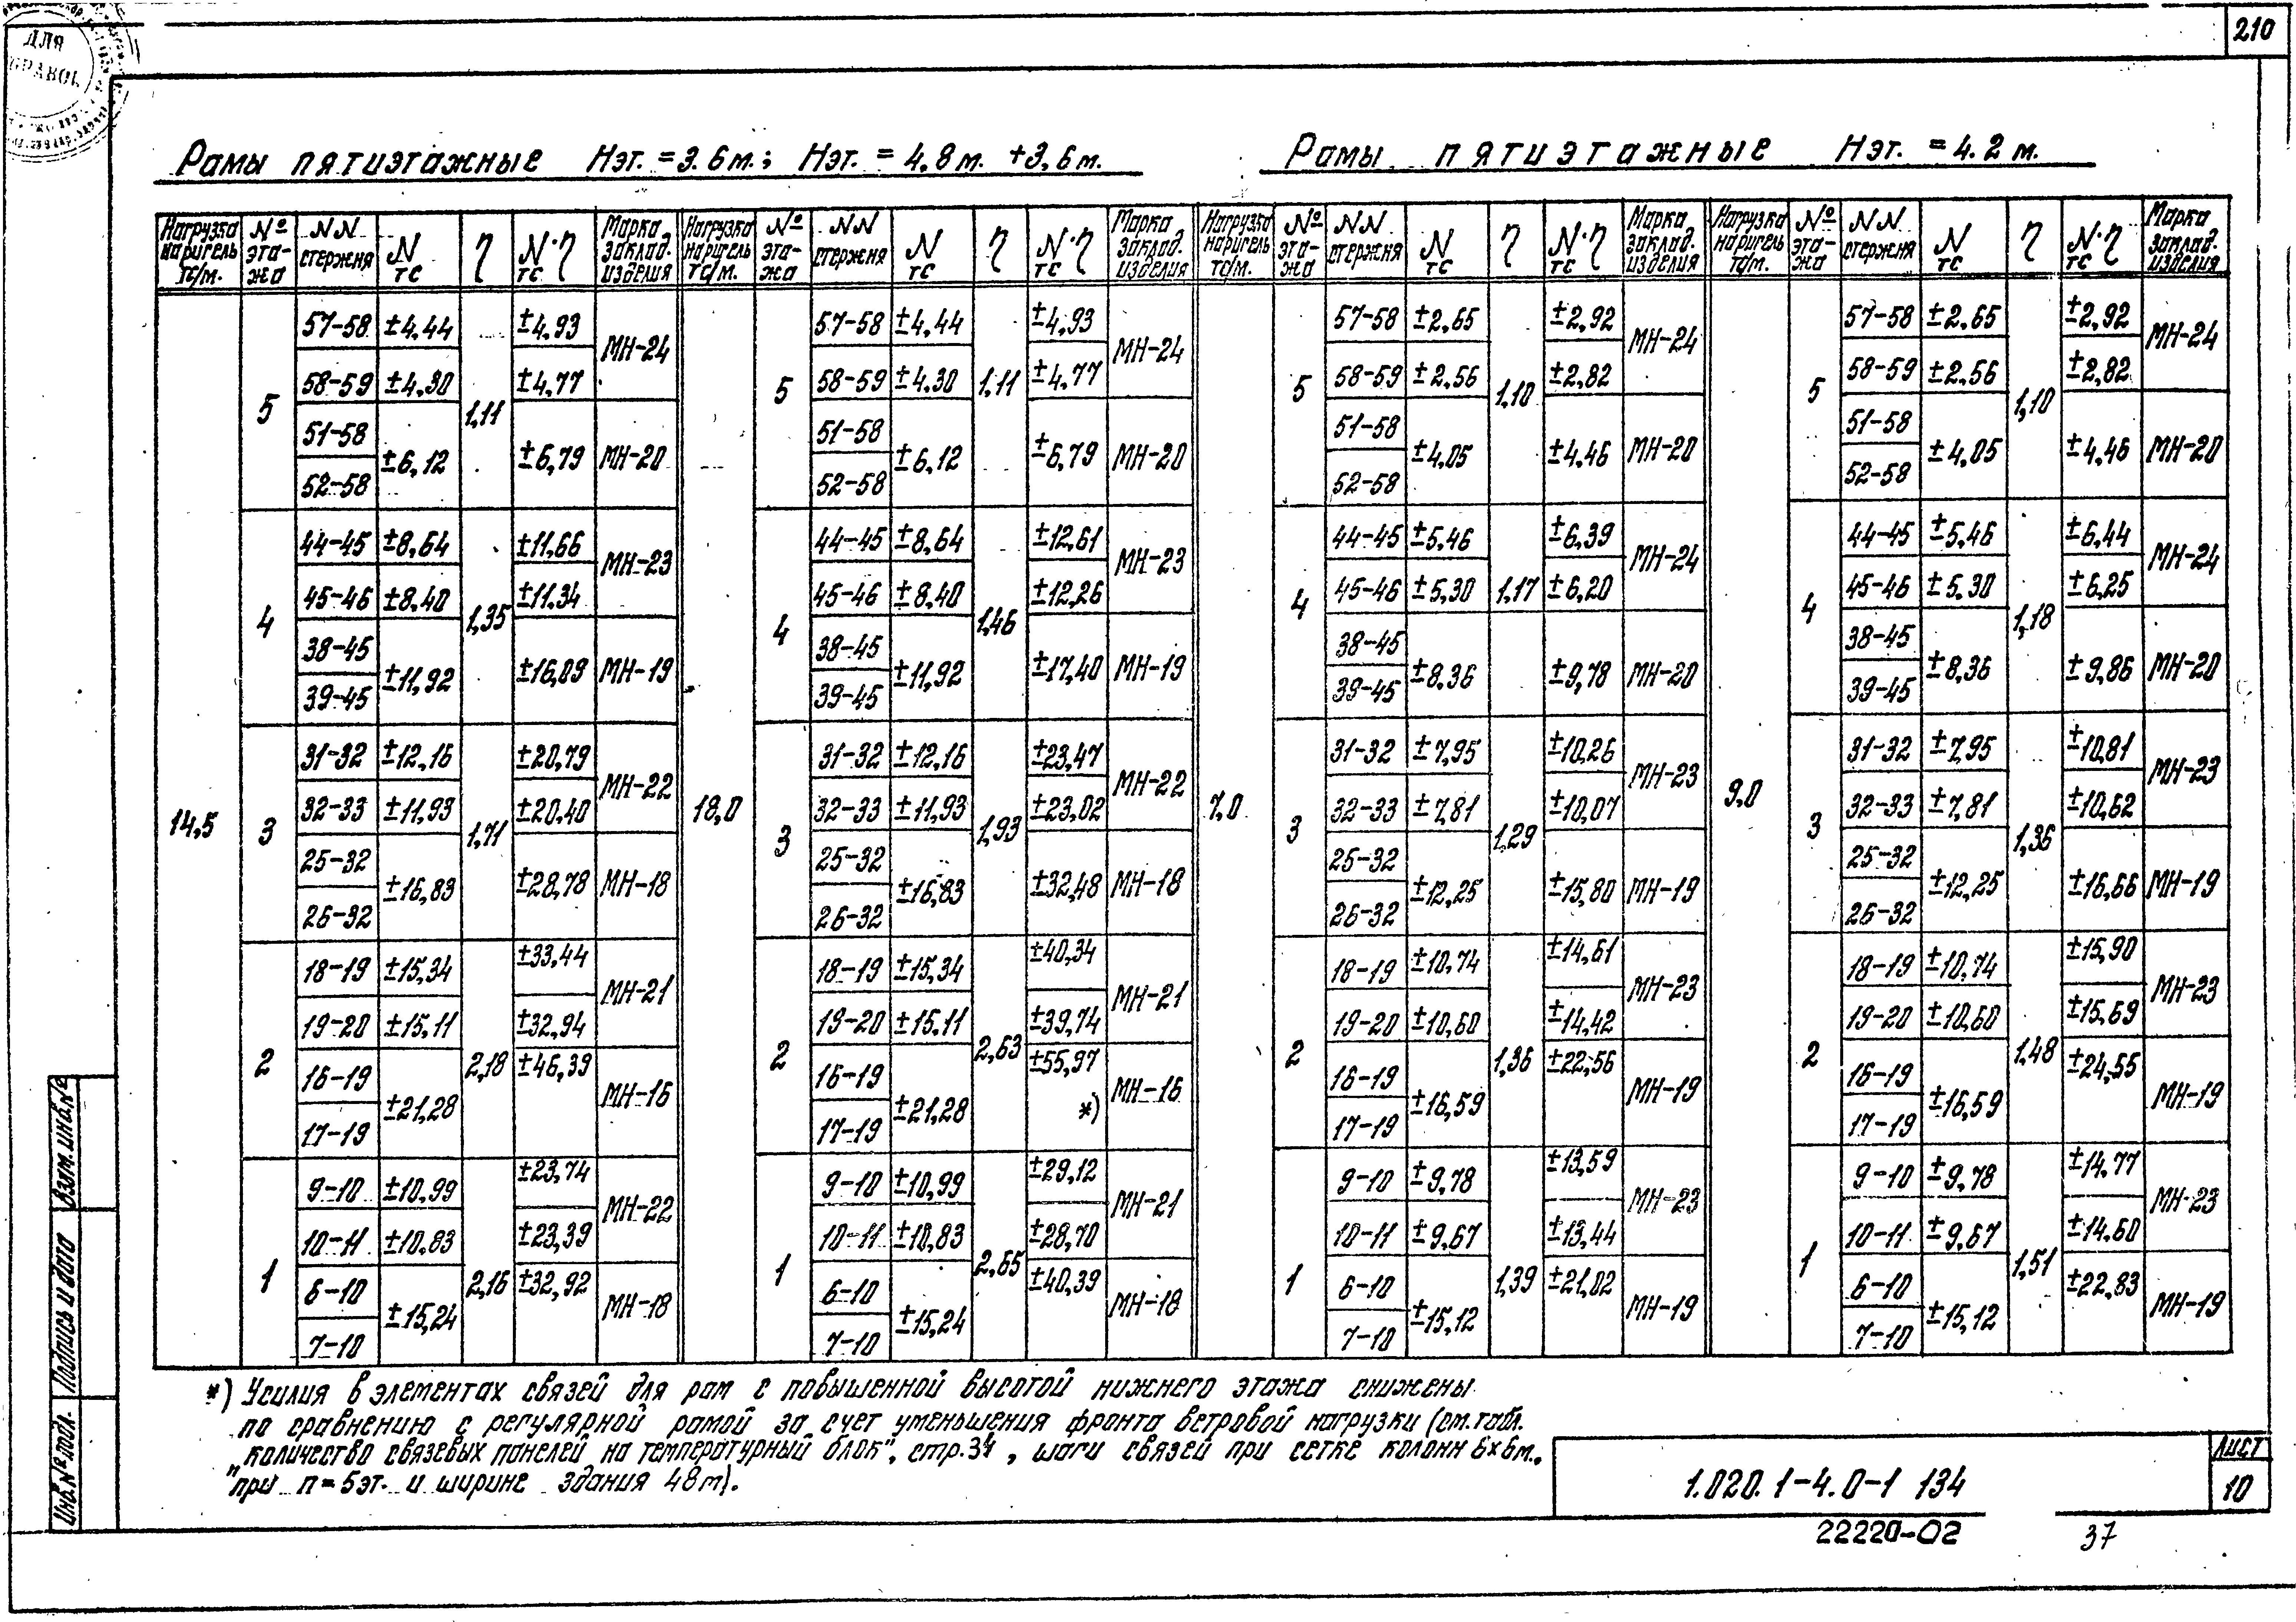 210
ДЛЯ
Рамы пятиэтажные Нэт. = 3.6м.; Нэт. = 4,8м. +3,6м.
Рамы пятиэтажные Нэт. = 4.2 м.
Нагрузка на ригель тс/м. | № эта-жа | NN стержня | N тс | η | N·η тс | Марка заклад. изделия
14,5
5 | 57-58 | ±4,44 | 1,11 | ±4,93 | МН-24
58-59 | ±4,30 | ±4,77
51-58 | ±6,12 | ±6,79 | МН-20
52-58
4 | 44-45 | ±8,64 | 1,35 | ±11,66 | МН-23
45-46 | ±8,40 | ±11,34
38-45 | ±11,92 | ±16,09 | МН-19
39-45
3 | 31-32 | ±12,16 | 1,71 | ±20,79 | МН-22
32-33 | ±11,93 | ±20,40
25-32 | ±16,83 | ±28,78 | МН-18
26-32
2 | 18-19 | ±15,34 | 2,18 | ±33,44 | МН-21
19-20 | ±15,11 | ±32,94
16-19 | ±21,28 | ±46,39 | МН-16
17-19
1 | 9-10 | ±10,99 | 2,16 | ±23,74 | МН-22
10-11 | ±10,83 | ±23,39
6-10 | ±15,24 | ±32,92 | МН-18
7-10
Нагрузка на ригель тс/м. | № эта-жа | NN стержня | N тс | η | N·η тс | Марка заклад. изделия
18,0
5 | 57-58 | ±4,44 | 1,11 | ±4,93 | МН-24
58-59 | ±4,30 | ±4,77
51-58 | ±6,12 | ±6,79 | МН-20
52-58
4 | 44-45 | ±8,64 | 1,46 | ±12,61 | МН-23
45-46 | ±8,40 | ±12,26
38-45 | ±11,92 | ±17,40 | МН-19
39-45
3 | 31-32 | ±12,16 | 1,93 | ±23,47 | МН-22
32-33 | ±11,93 | ±23,02
25-32 | ±16,83 | ±32,48 | МН-18
26-32
2 | 18-19 | ±15,34 | 2,63 | ±40,34 | МН-21
19-20 | ±15,11 | ±39,74
16-19 | ±21,28 | ±55,97 *) | МН-16
17-19
1 | 9-10 | ±10,99 | 2,65 | ±29,12 | МН-21
10-11 | ±10,83 | ±28,70
6-10 | ±15,24 | ±40,39 | МН-18
7-10
Нагрузка на ригель тс/м. | № эта-жа | NN стержня | N тс | η | N·η тс | Марка заклад. изделия
7,0
5 | 57-58 | ±2,65 | 1,10 | ±2,92 | МН-24
58-59 | ±2,56 | ±2,82
51-58 | ±4,05 | ±4,46 | МН-20
52-58
4 | 44-45 | ±5,46 | 1,17 | ±6,39 | МН-24
45-46 | ±5,30 | ±6,20
38-45 | ±8,36 | ±9,78 | МН-20
39-45
3 | 31-32 | ±7,95 | 1,29 | ±10,26 | МН-23
32-33 | ±7,81 | ±10,07
25-32 | ±12,25 | ±15,80 | МН-19
26-32
2 | 18-19 | ±10,74 | 1,36 | ±14,61 | МН-23
19-20 | ±10,60 | ±14,42
16-19 | ±16,59 | ±22,56 | МН-19
17-19
1 | 9-10 | ±9,78 | 1,39 | ±13,59 | МН-23
10-11 | ±9,67 | ±13,44
6-10 | ±15,12 | ±21,02 | МН-19
7-10
Нагрузка на ригель тс/м. | № эта-жа | NN стержня | N тс | η | N·η тс | Марка заклад. изделия
9,0
5 | 57-58 | ±2,65 | 1,10 | ±2,92 | МН-24
58-59 | ±2,56 | ±2,82
51-58 | ±4,05 | ±4,46 | МН-20
52-58
4 | 44-45 | ±5,46 | 1,18 | ±6,44 | МН-24
45-46 | ±5,30 | ±6,25
38-45 | ±8,36 | ±9,86 | МН-20
39-45
3 | 31-32 | ±7,95 | 1,36 | ±10,81 | МН-23
32-33 | ±7,81 | ±10,62
25-32 | ±12,25 | ±16,66 | МН-19
26-32
2 | 18-19 | ±10,74 | 1,48 | ±15,90 | МН-23
19-20 | ±10,60 | ±15,69
16-19 | ±16,59 | ±24,55 | МН-19
17-19
1 | 9-10 | ±9,78 | 1,51 | ±14,77 | МН-23
10-11 | ±9,67 | ±14,60
6-10 | ±15,12 | ±22,83 | МН-19
7-10
*) Усилия в элементах связей для рам с повышенной высотой нижнего этажа снижены
по сравнению с регулярной рамой за счет уменьшения фронта ветровой нагрузки (см. табл.
„количество связевых панелей на температурный блок", стр. 34, шаги связей при сетке колонн 6×6м.,
при n = 5эт. и ширине здания 48м).
Инв.№ подл. Подпись и дата Взам.инв.№
1.020.1-4.0-1 134
Лист
10
22220-02
37